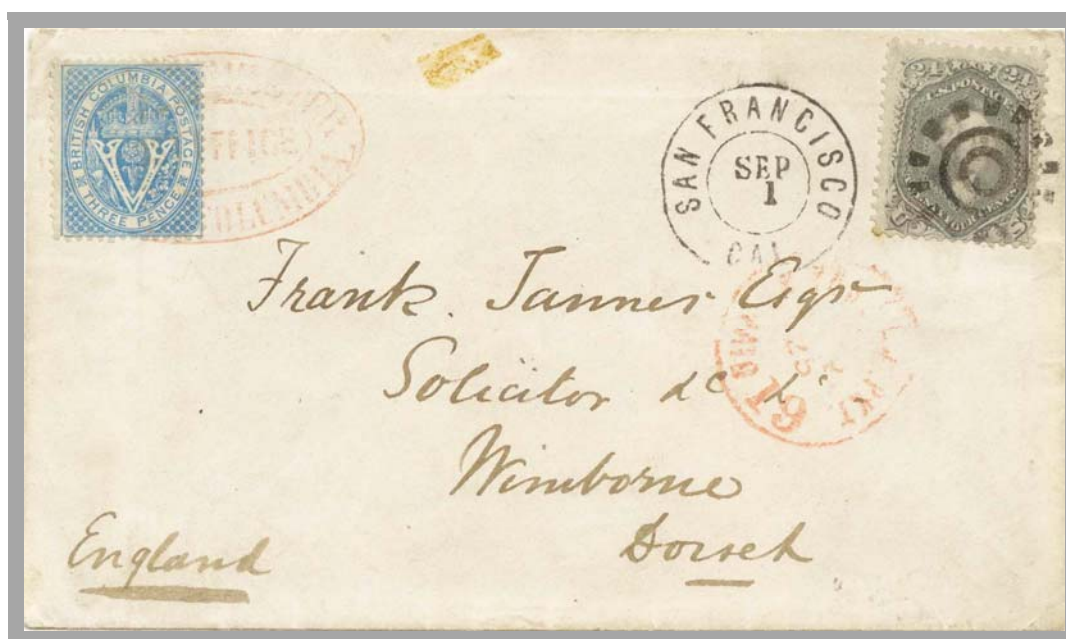 BRITISH COLUMBIA POSTAGE
THREE PENCE
V
SAN FRANCISCO
SEP
1
CAL
24 24
U.S. POSTAGE
19
PKT
Frank. Tanner Esqr
Solicitor &c &c
Wimborne
Dorset
England